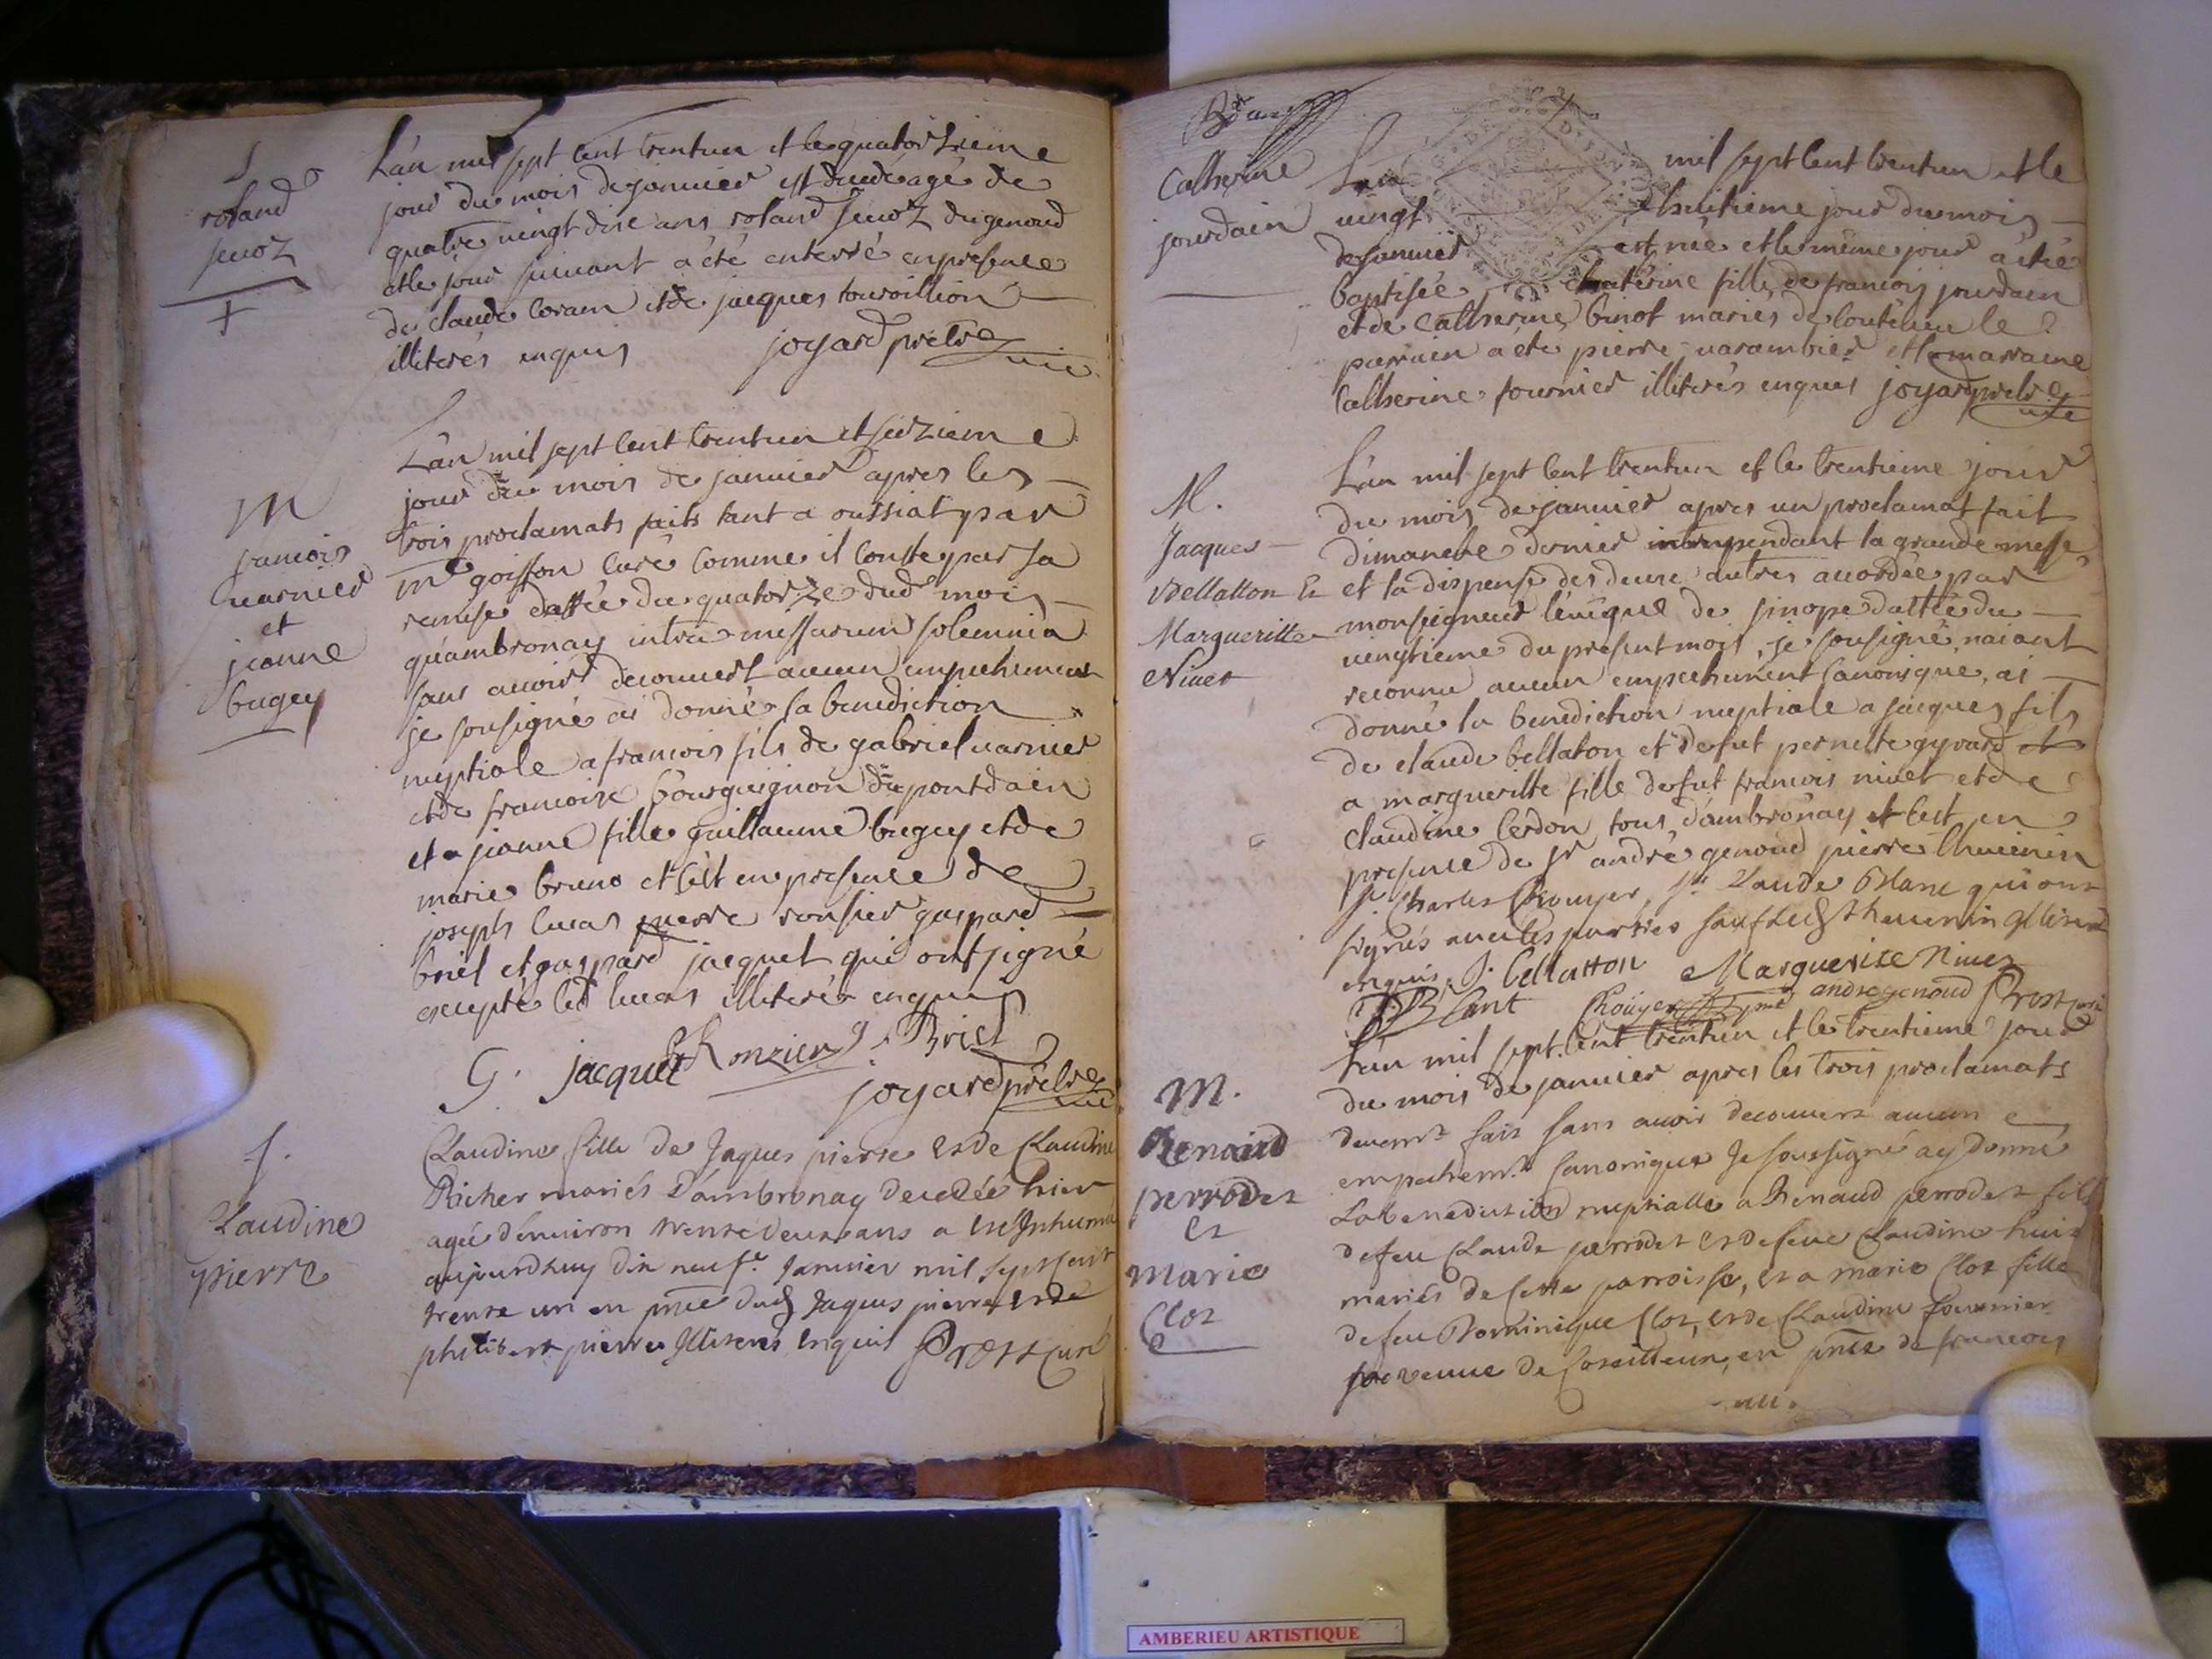 S
roland
seuoz
L'an mil sept cent trentun et le quatorzieme
jour du mois de janvier est decedé agé de
quatre vingt dixe ans roland seuoz du genoud
et le jour suivant a été enterré en presence
de claude lorain et de jacques tournillion
illiterés enquis joyard prêtre
vic
M
francois
varnier
et
jeanne
bugey
L'an mil sept cent trentun et seizieme
jour du mois de janvier apres les
trois proclamats faits tant a oussiat par
mre goisson curé comme il conste par sa
remise dattée du quatorze dud mois
qu'ambronay intra missarum solemnia
sans avoir decouvert aucun empechement
je sousigné ai donné la benediction
nuptiale a francois fils de gabriel varnier
et de francoise bourguignon du pontdain
et a jeanne fille guillaume bugey et de
marie bruno et c'est en presence de
joseph lucas pierre ronsier gaspard
briel et gaspard jacquet qui ont signé
excepté led lucas illiteré enquis
G. jacquet Ronzier g. Briel
joyard prêtre
vic
S.
Claudine
pierre
Claudine fille de Jaques pierre et de Claudine
Richer mariés d'ambronay decedée hier
agée d'environ trente deux ans a été Inhumé
aujourdhuy dix neufe Janvier mil sept cent
trente un en pnce dud Jaques pierre et de
philibert pierre Illiterés Enquis Prost Curé
Bdaux
Catherine
jourdain
L'an mil sept cent trentun et le
vingt huitieme jour du mois
de janvier est née et le même jour a été
baptisée catérine fille de francois jourdain
et de catherine binot mariés de coutelieu le
parrain a été pierre varambier et la marraine
Catherine fournier illiterés enquis joyard prêtre
vic
M.
Jacques
Bellatton et
Margueritte
Nivet
L'an mil sept cent trentun et le trentieme jour
du mois de janvier apres un proclamat fait
dimanche dernier pendant la grande messe
et la dispense des deux autres accordée par
monseigneur l'évêque de sinope dattée du
vingtieme du present mois, je sousigné, naiant
reconnu aucun empechement canonique, ai
donné la benediction nuptiale a jacques fils
de claude bellaton et de fut pernette gyvard et
a margueritte fille de fut francois nivet et de
claudine cerdon tous d'ambronay et c'est en
presence de sr andré genoud pierre thuienin
Sr Charles Chouyer, Sr Claude Blanc qui ont
signés avec les parties sauf led thevenin illiteré
enquis. J. bellatton Marguerite Nivet
Blant Choüyer andre genoud Prost curé
M.
Renaud
perrodet
et
Marie
Cloz
L'an mil sept cent trentun et le trentieme jour
du mois de janvier apres les trois proclamats
deuemt fait sans avoir decouvert aucun
empechemt Canonique Je soussigné ay donné
La benediction nuptialle a Renaud perrodet fils
de feu Claude perrodet et de feue Claudine huit
mariés de cette parroisse, et a marie Cloz fille
de feu Dominique Cloz, et de Claudine fournier
provenue de Coseilleux, en pnce de francois
AMBERIEU ARTISTIQUE